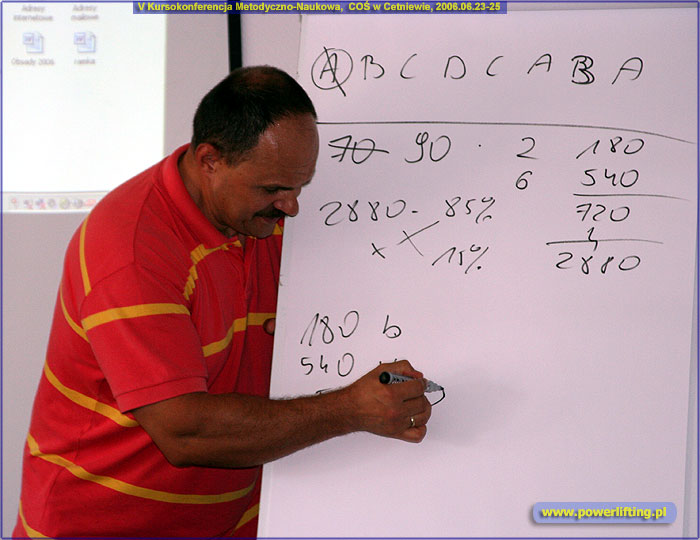 V Kursokonferencja Metodyczno-Naukowa, COŚ w Cetniewie, 2006.06.23-25
Adresy internetowe
Adresy mailowe
Obsady 2006
ramka
A B C D C A B A
70 90 · 2 180
6 540
2880 - 85% 720
x 15% 4
2880
180 b
540
www.powerlifting.pl